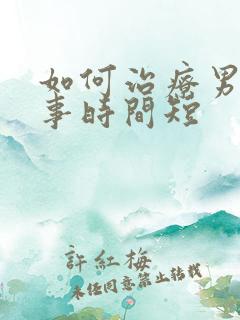 如何治療男
事時間短
許紅梅
未经同意禁止转载